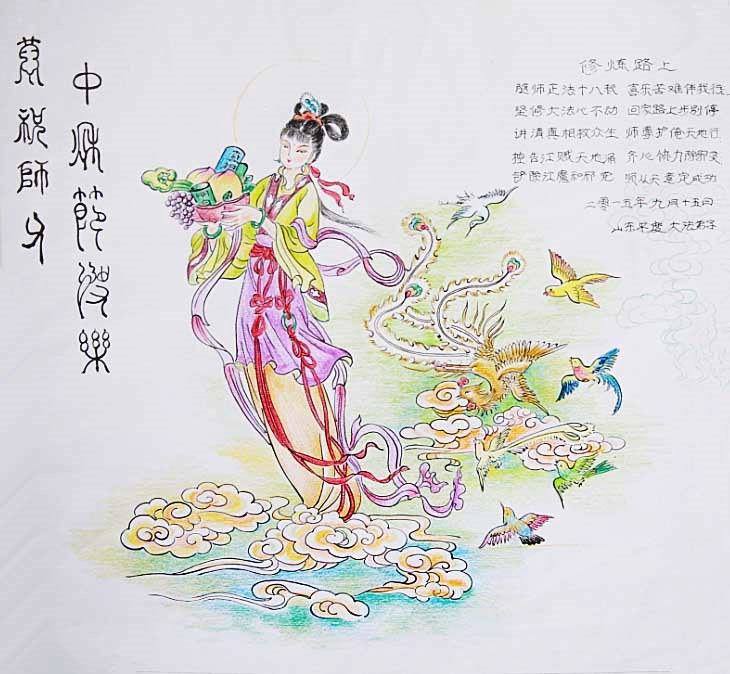 恭祝師父
中秋節快樂
修炼路上
师正法十八秋 喜乐苦难伴我
坚修大法心不动 回家路上步别停
讲清真相救众生 师尊护俺天地行
控告江贼天地 齐心力除邪
铲除江魔和邪党 顺从天意定成功
二零一五年九月十五日
山东 大法弟子